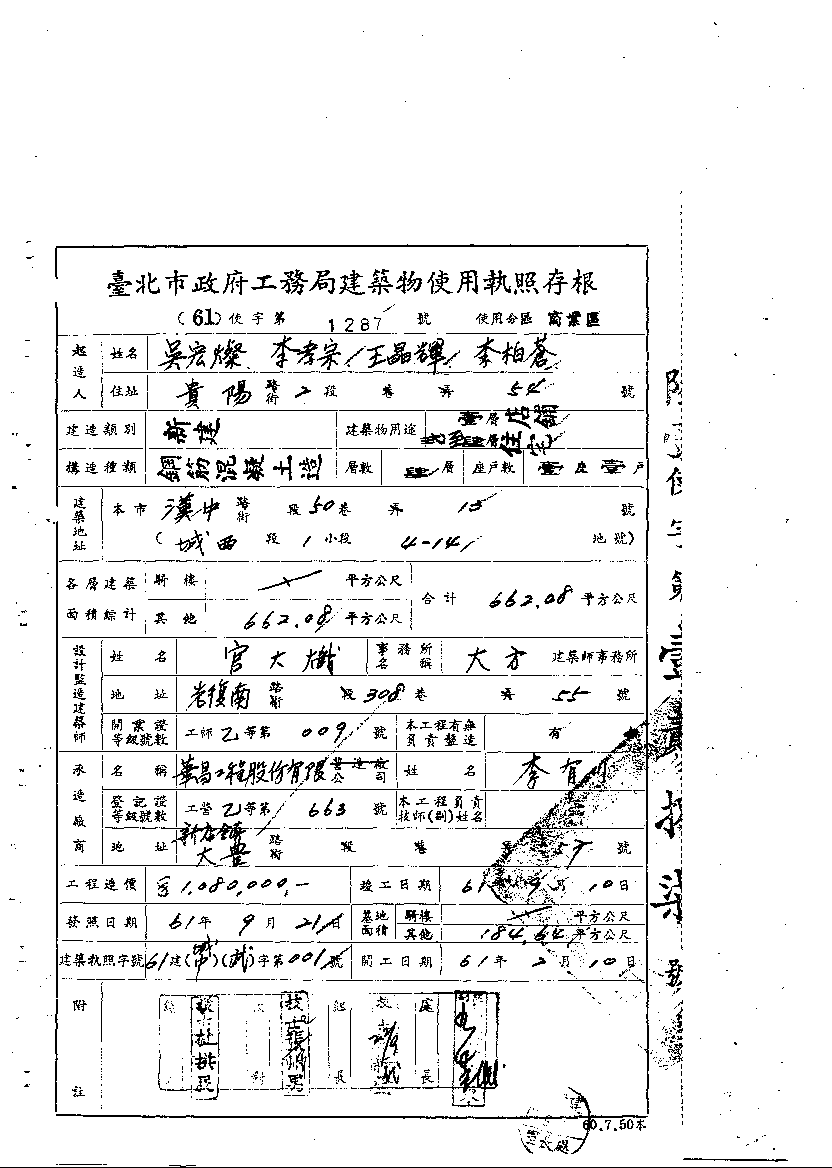 臺北市政府工務局建築物使用執照存根
(61)使字第 1287 號 使用分區 商業區
起造人 姓名 吳宏燦 李孝宗 王晶輝 李柏蒼
住址 貴陽 路街 2 段 巷 弄 54 號
建造類別 新建 建築物用途 壹層店鋪 層住宅
構造種類 鋼筋混凝土造 層數 肆層 座戶數 壹座壹戶
建築地址 本市 漢中 路街 段 50 巷 弄 15 號
(城西 段 1 小段 4-14 地號)
各層建築面積綜計 騎樓 平方公尺 合計 662.08 平方公尺
其他 662.08 平方公尺
設計監造建築師 姓名 官大 事務所名稱 大方 建築師事務所
地址 光復南 路街 段 308 巷 弄 55 號
開業證等級號數 工師乙等第 009 號 本工程有無負責監造 有
承造廠商 名稱 華昌工程股份有限 營造廠公司 姓名 李
登記證等級號數 工營乙等第 663 號 本工程負責技師(副)姓名
地址 新店鎮大豐 路街 段 巷 弄 57 號
工程造價 1,080,000,- 竣工日期 61年9月10日
發照日期 61年9月21日 基地面積 騎樓 平方公尺
其他 184.64 平方公尺
建築執照字號 61建( )(城)字第001號 開工日期 61年2月10日
附註
長 處長
60.7.50本